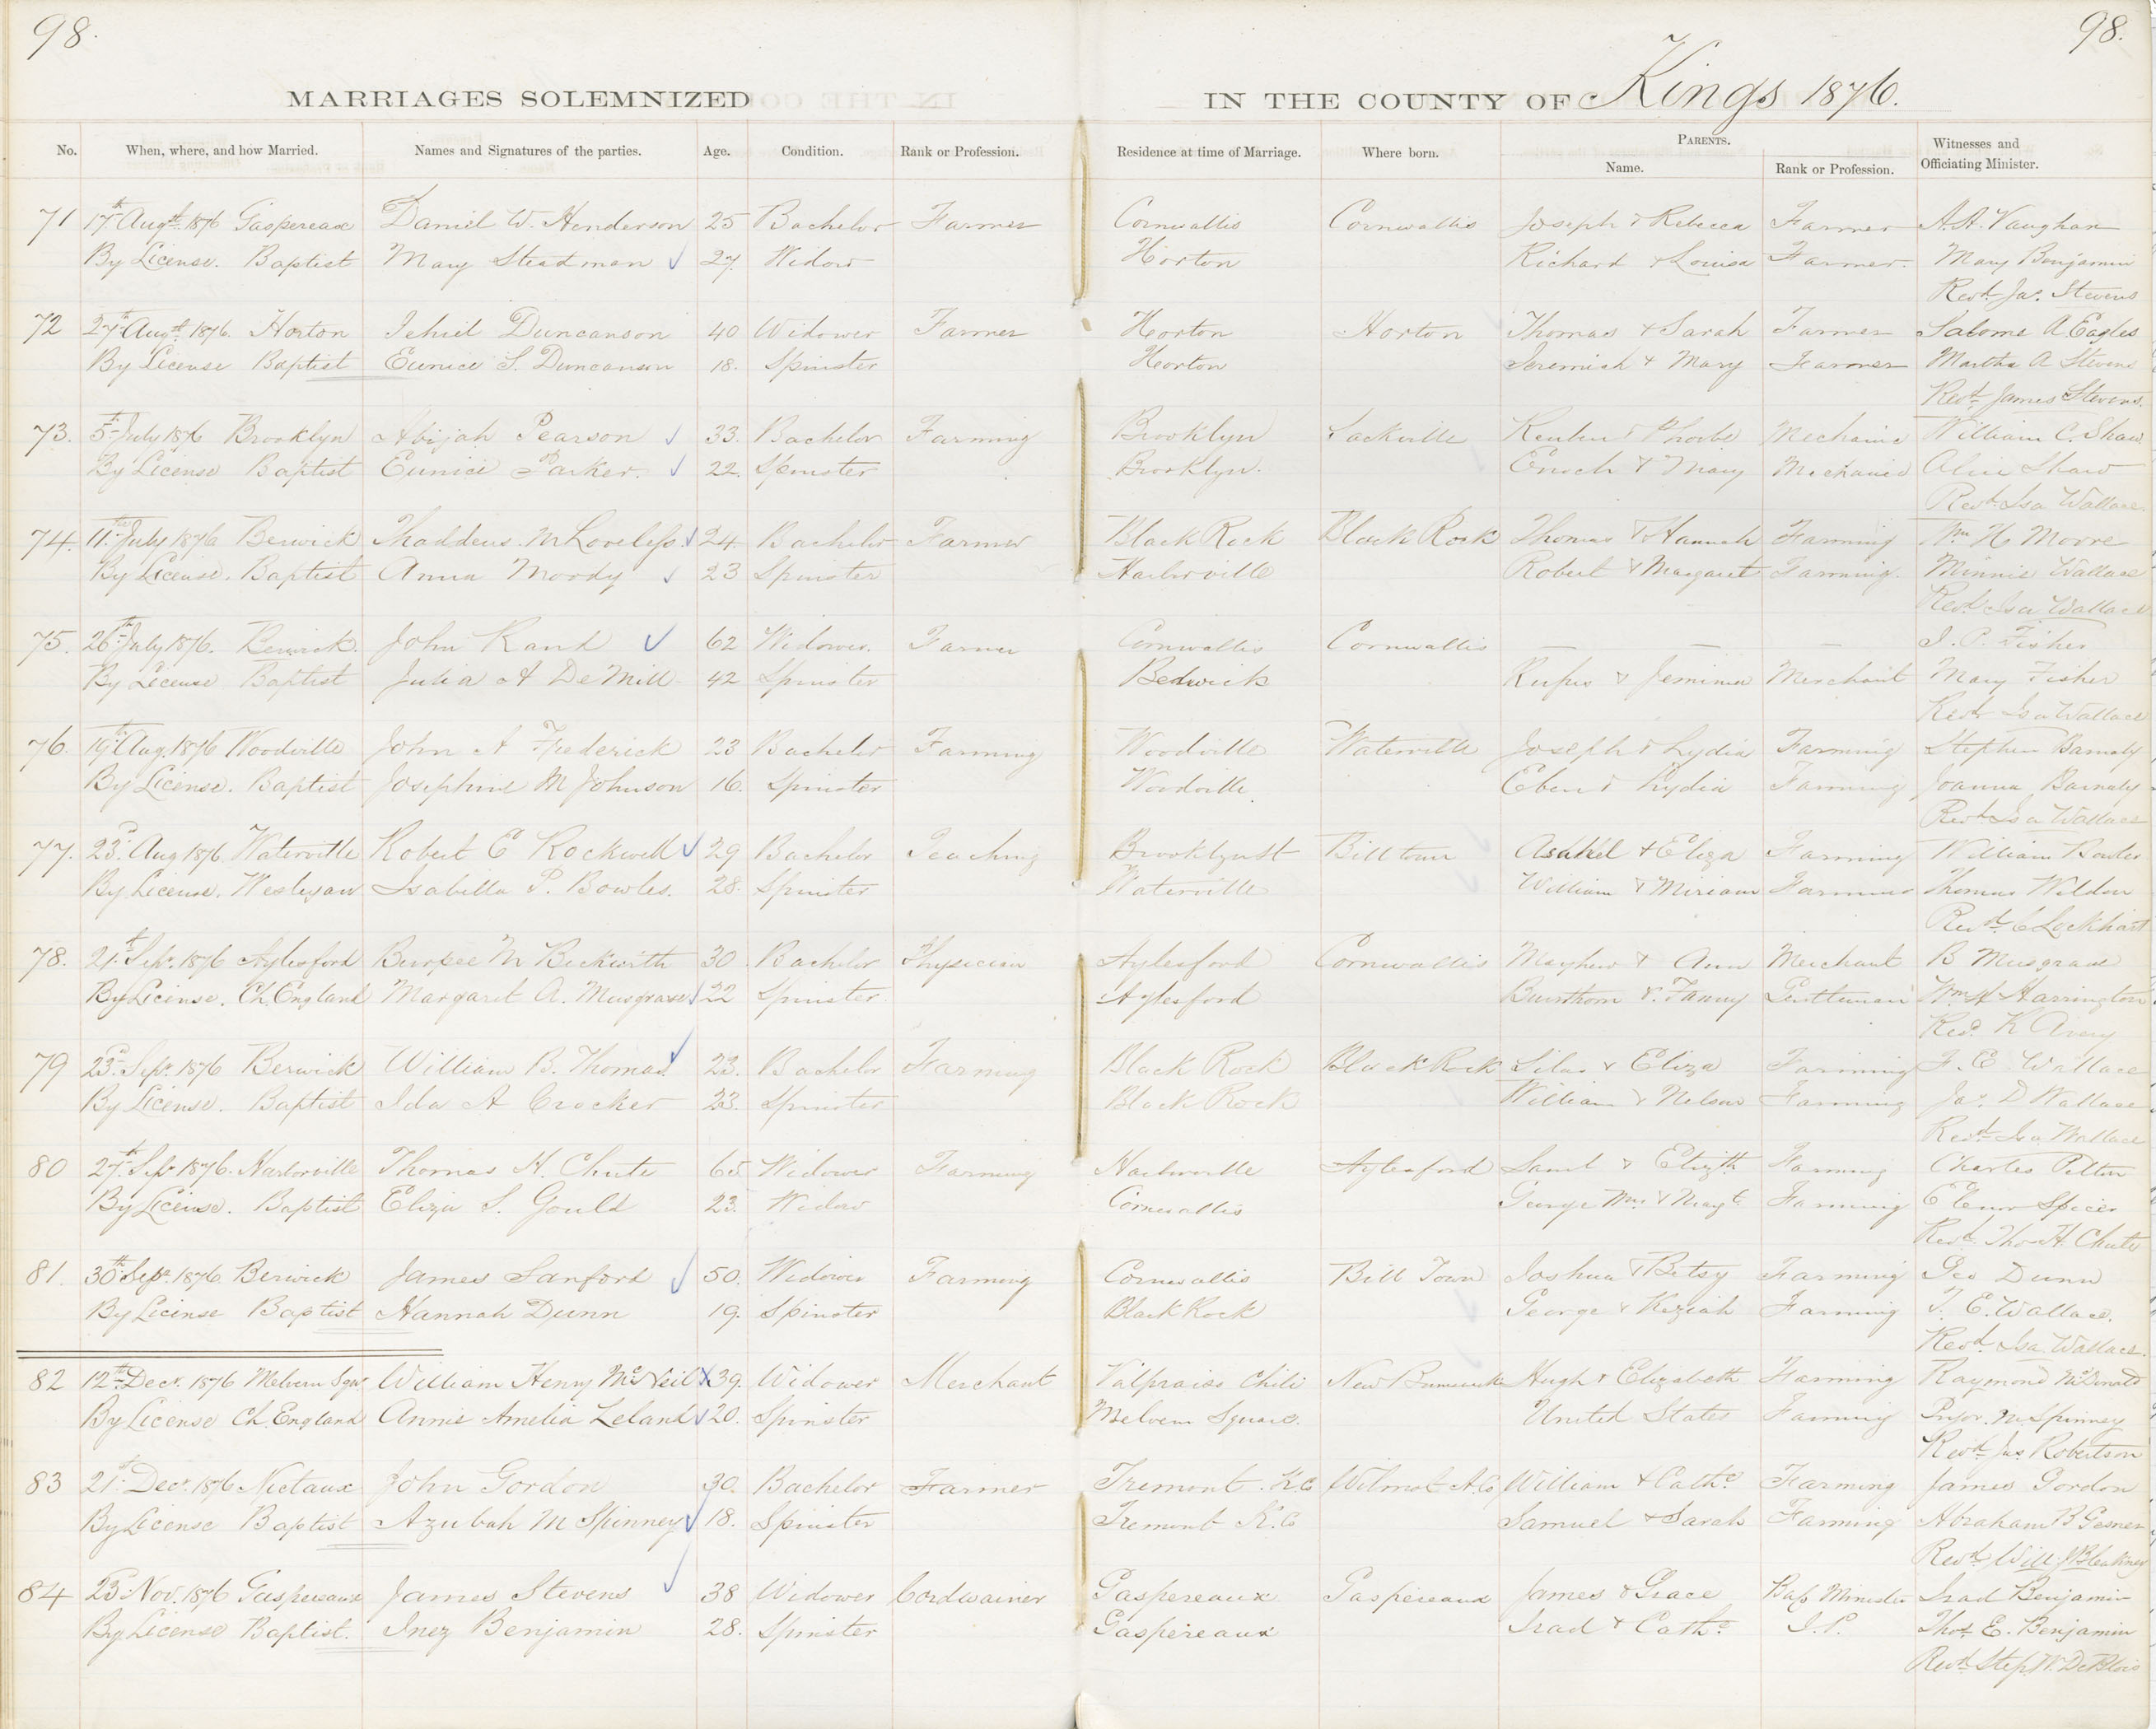 98.
98.
MARRIAGES SOLEMNIZED
IN THE COUNTY OF Kings 1876.
No. When, where, and how Married. Names and Signatures of the parties. Age. Condition. Rank or Profession. Residence at time of Marriage. Where born. PARENTS. Name. Rank or Profession. Witnesses and Officiating Minister.
71 17th Augst 1876 Gaspereaux Daniel W. Henderson 25 Bachelor Farmer Cornwallis Cornwallis Joseph & Rebecca Farmer A. A. Vaughan
By License. Baptist Mary Steadman 27. Widow Horton Richard & Louisa Farmer. Mary Benjamin
Revd. Jas. Stevens
72 27th Augst. 1876. Horton Jehiel Duncanson 40 Widower Farmer Horton Horton Thomas & Sarah Farmer Salome A. Eagles
By License Baptist Eunice S. Duncanson 18. Spinster Horton Jeremiah & Mary Farmer Martha A Stevens
Revd. James Stevens.
73. 5th July 1876 Brooklyn Abijah Pearson 33. Bachelor Farming Brooklyn Sackville Reuben & Phoebe Mechanic William C. Shaw
By License Baptist Eunice Parker. 22. Spinster Brooklyn. Enoch & Mary Mechanic Alice Shaw
Revd. Isa Wallace
74. 11th July 1876 Berwick Thaddeus M Loveless. 24. Bachelor Farmer Black Rock Black Rock Thomas & Hannah Farming Wm H. Moore
By License. Baptist Anna Moody 23 Spinster Harborville Robert & Margaret Farming. Minnie Wallace
Revd. Isa Wallace
75. 26th July 1876. Berwick. John Rand 62 Widower. Farmer Cornwallis Cornwallis — — — J. P. Fisher
By License Baptist Julia A DeMill 42 Spinster Bedwick Rufus & Jemima Merchant Mary Fisher
Revd. Isa Wallace
76. 19th Aug. 1876 Woodville John A Frederick 23 Bachelor Farming Woodville Waterville Joseph & Lydia Farming Stephen Barnaby
By License. Baptist Josephine M Johnson 16. Spinster Woodville Eben & Lydia Farming Joanna Barnaby
Revd. Isa Wallace
77. 23d. Aug 1876 Waterville Robert E Rockwell 29 Bachelor Teaching Brooklyn St Billtown Asahel & Eliza Farming William Bowles
By License. Wesleyan Isabella P. Bowles. 28. Spinster Waterville William & Miriam Farming Thomas Weldon
Revd. C Lockhart
78. 21st Sepr. 1876 Aylesford Burpee M Beckwith 30 Bachelor Physician Aylesford Cornwallis Mayhew & Ann Merchant B Musgrave
By License. Ch. England Margaret A. Musgrave 22 Spinster Aylesford & Fanny Gentleman Wm. H Harrington
Revd. R Avery
79 23d. Sepr. 1876 Berwick William B. Thomas 23. Bachelor Farming Black Rock Black Rock Silas & Eliza Farming F. E. Wallace
By License. Baptist Ida A Crocker 23. Spinster Black Rock William & Nelson Farming Jas. D Wallace
Revd. Isa Wallace
80 27th Sepr 1876. Harborville Thomas H. Chute 65 Widower Farming Harborville Aylesford Saml & Elizth Farming Charles Pelton
By License. Baptist Eliza S. Gould 23. Widow Cornwallis George Wm. & Margt. Farming Elenor Spicer
Revd. Tho H. Chute
81. 30th Sepr. 1876 Berwick James Sanford 50. Widower Farming Cornwallis Bill Town Joshua & Betsy Farming Geo Dunn
By License Baptist Hannah Dunn 19. Spinster Black Rock George & Keziah Farming F. E. Wallace.
Revd. Isa Wallace.
82 12th Decr. 1876 Melvern Sqr William Henry McNeil 39. Widower Merchant Valpraiso Chili New Brunswick Hugh & Elizabeth Farming Raymond McDonald
By License Ch. England Annie Amelia Leland 20. Spinster Melvern Square. United States Farming M Spinney
Revd. Jas Robertson
83 21st Decr. 1876 Nictaux John Gordon 30. Bachelor Farmer Tremont. K.Co Wilmot A.Co William & Cathe. Farming James Gordon
By License Baptist Azubah M Spinney 18. Spinster Tremont K.Co Samuel & Sarah Farming Abraham B Gesner
Revd. Will J Bleakney
84 23d Nov. 1876 Gaspereaux James Stevens 38 Widower Cordwainer Gaspereaux Gaspereaux James & Grace Baps Minister Irad Benjamin
By License Baptist. Inez Benjamin 28. Spinster Gaspereaux Irad & Cathe. J.P. Thos. E. Benjamin
Revd. Step. W. DeBlois